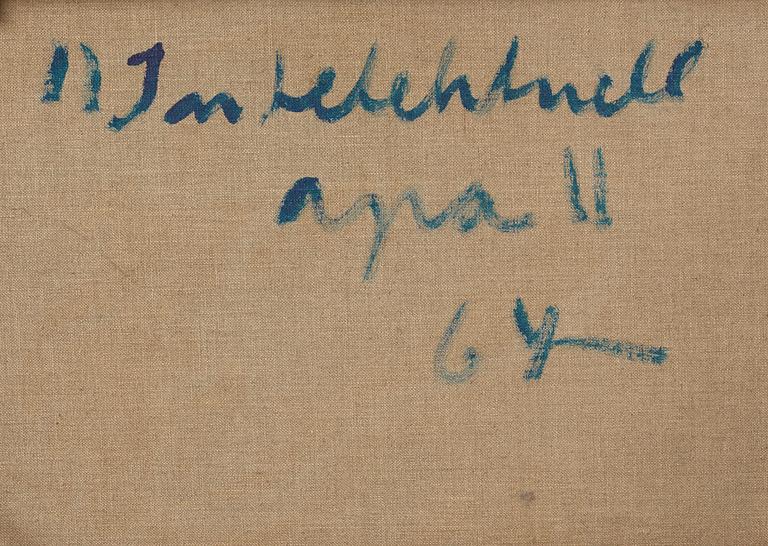 "Intelektuell
apa"
64